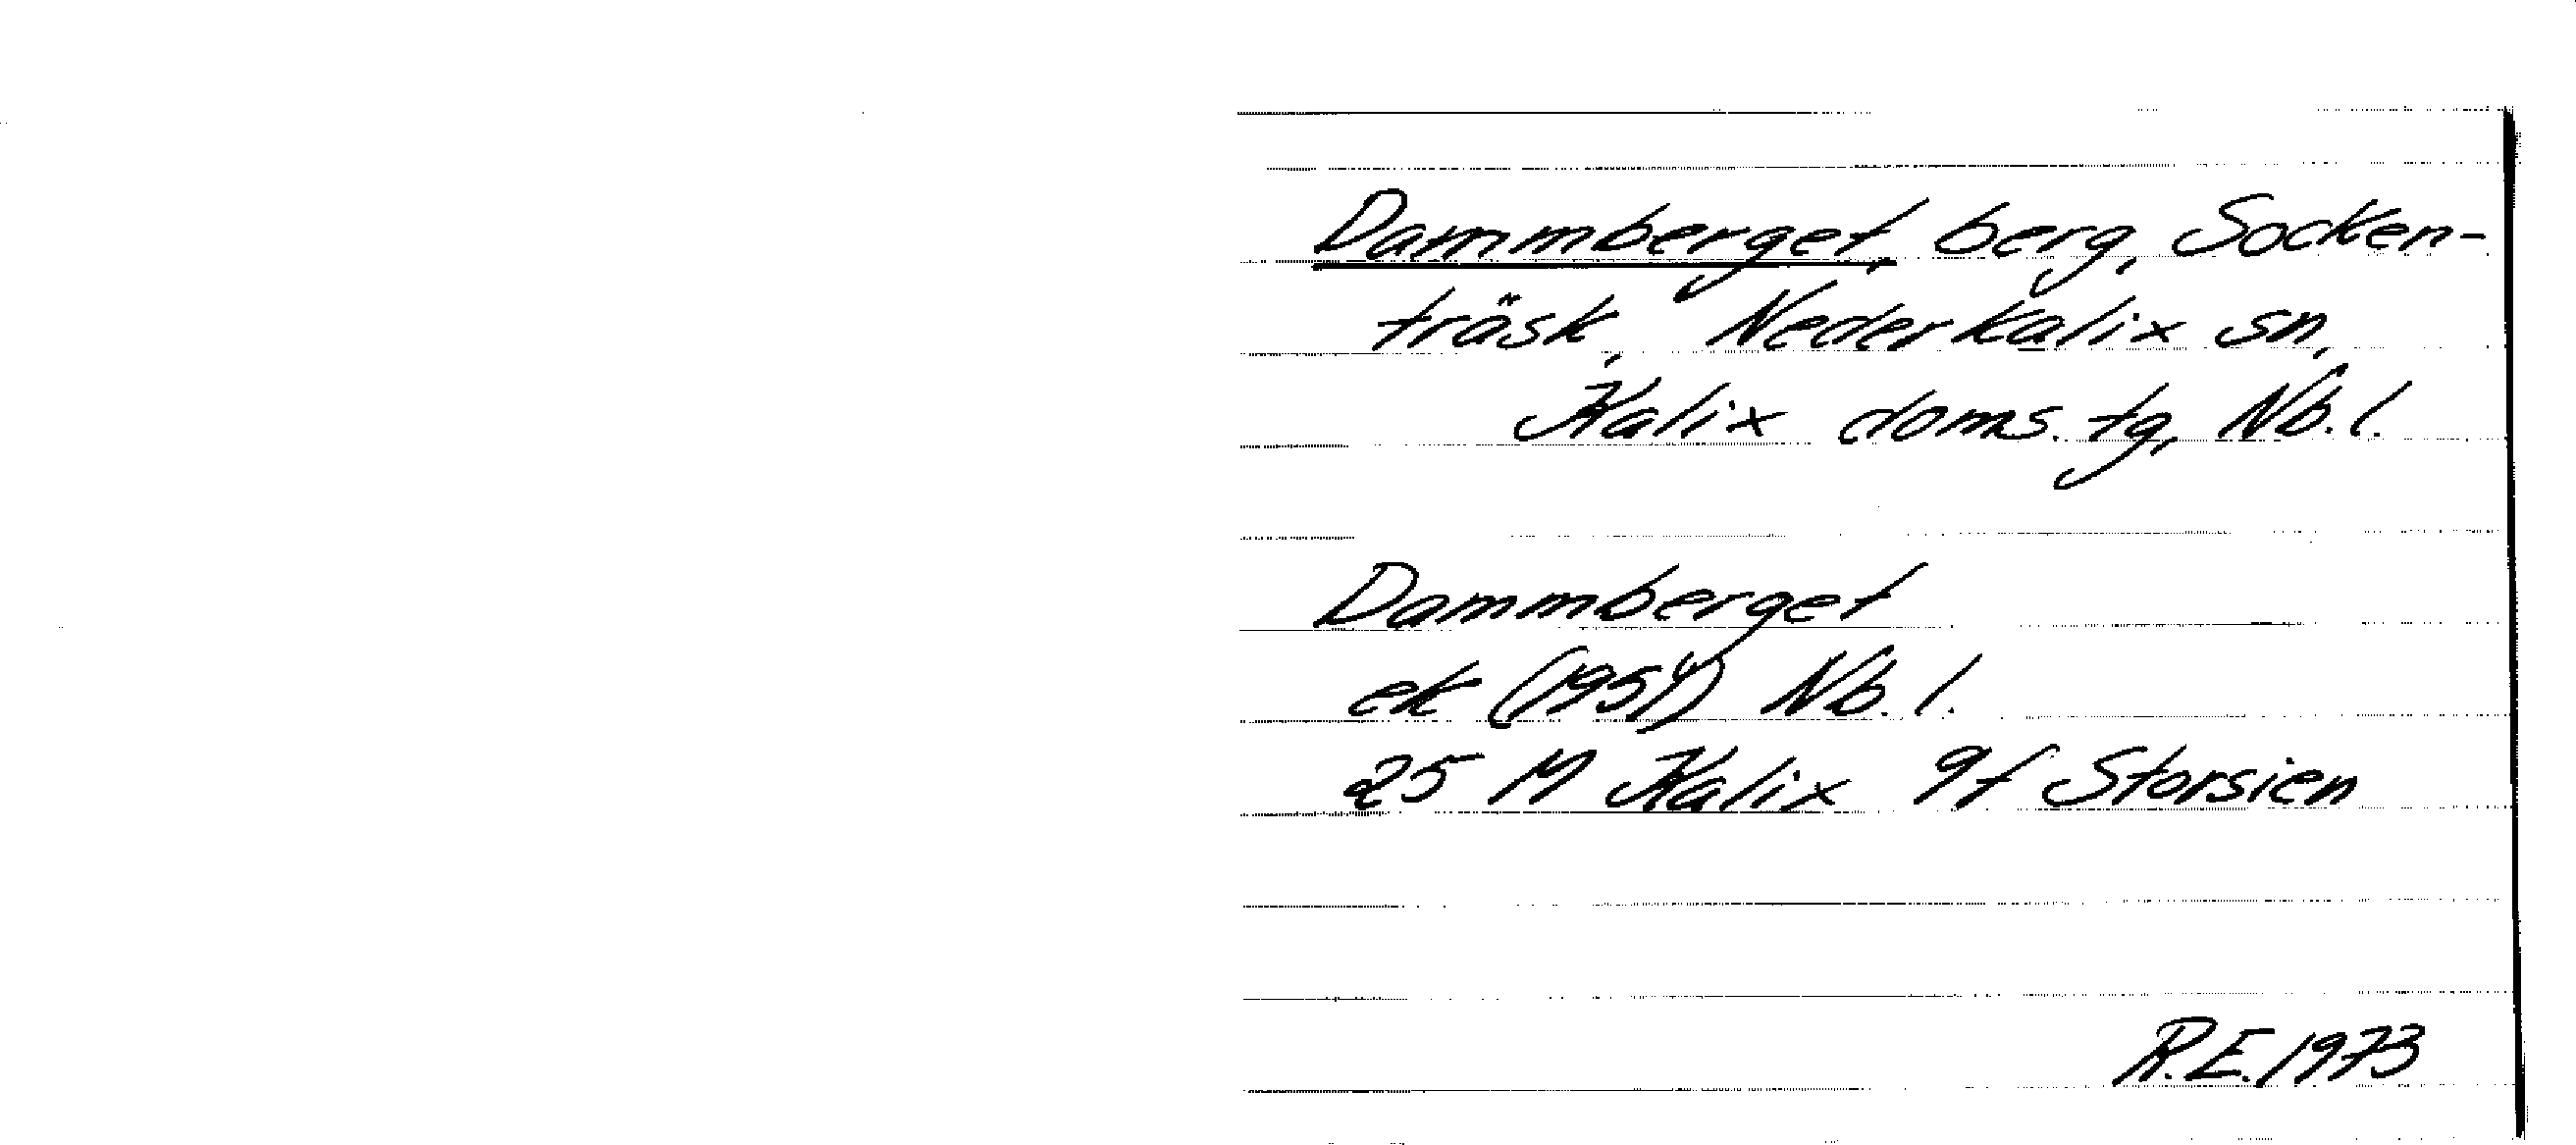 Dammberget, berg, Socken-
träsk, Nederkalix sn,
Kalix doms. tg, Nb. l.
Dammberget
ek (1951) Nb. l.
25 M Kalix 9f Storsien
R.E. 1973